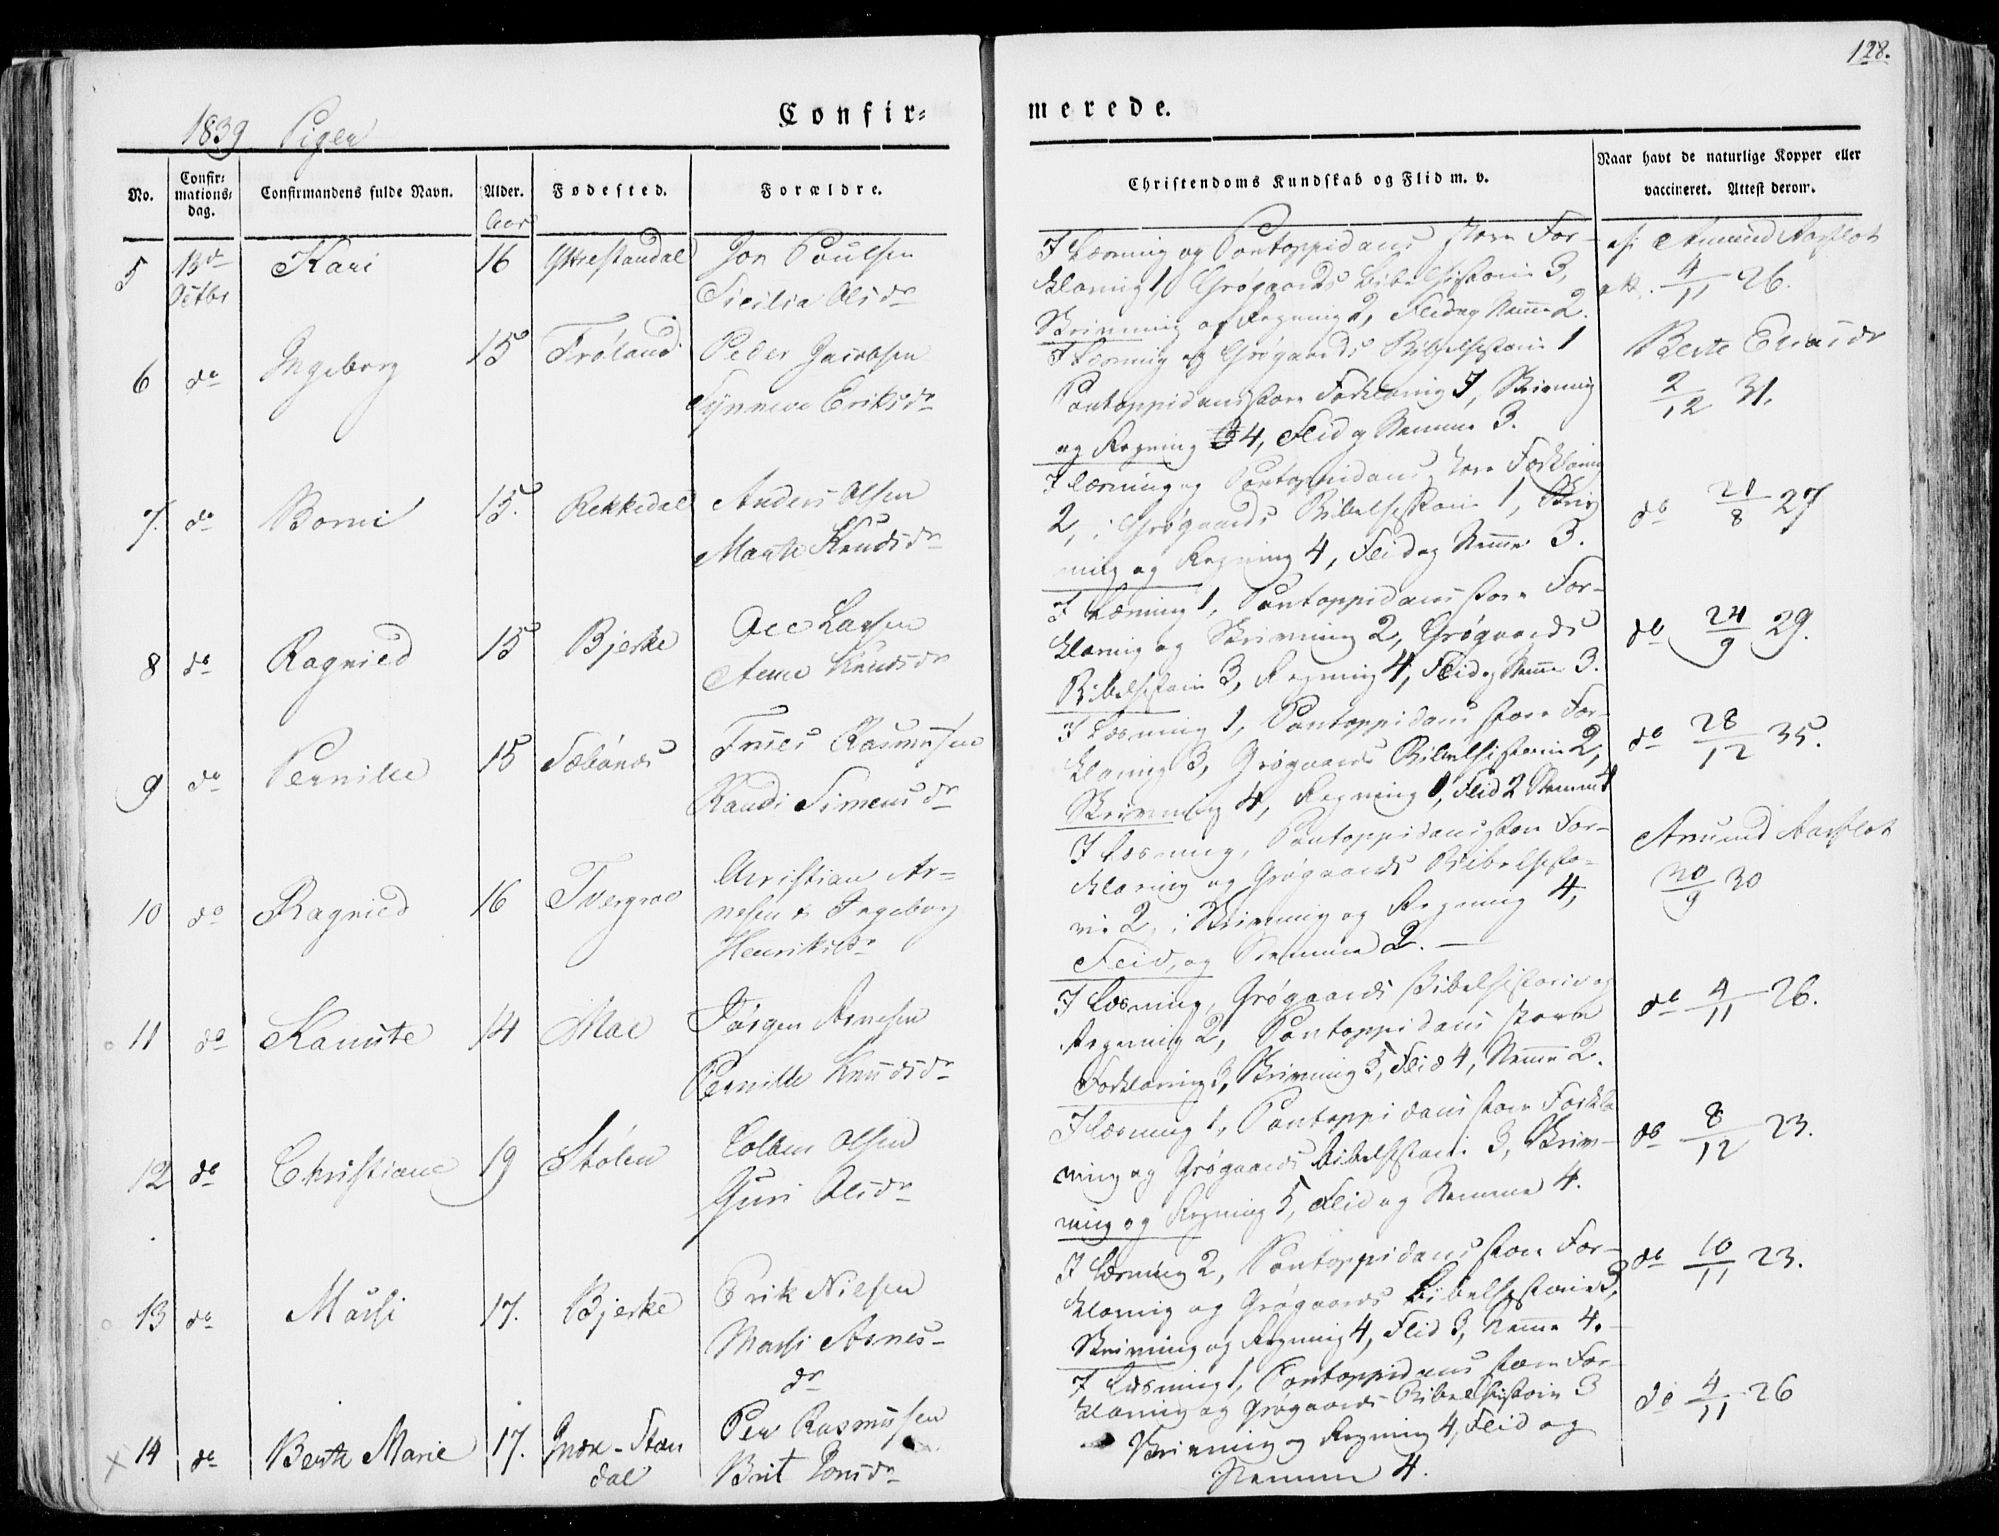 128.
1839 Piger
Confir=
merede.
No.
Confir=
mations=
dag.
Confirmandens fulde Navn.
Alder.
Aar
Fødested.
Forældre.
Christendoms Kundskab og Flid m. v.
Naar havt de naturlige Kopper eller
vaccineret. Attest derom.
5
13de
Octbr
Kari
16
Ytrestandal
Jon Poulsen
Sicilia Olsdr
I Læsning og Pontoppidans store For-
klaring 1, Grøgaards Bibelhistorie 3,
Skrivning og Regning 2, Flid og Nemme 2.
af Amund Aarflot
att. 4/11 26.
6
do
Ingeborg
15
Frøland
Peder Jacobsen
Synneve Eriksdr
I Læsning og Grøgaards Bibelhistorie 1
Pontoppidans store Forklaring 1, Skrivning
og Regning 4, Flid og Nemme 3.
Berte Eliasdr
2/12 31.
7.
do
Borni
15.
Rekkedal
Anders Olsen
Marte Knudsdr
I Læsning og Pontoppidans store Forklaring
2, i Grøgaards Bibelhistorie 1, Skriv
ning og Regning 4, Flid og Nemme 3.
do 21/8 27
8
do
Ragnild
15
Bjerke
Ole Larsen
Anne Knudsdr
I Læsning 1, Pontoppidans store For-
klaring og Skrivning 2, Grøgaards
Bibelhistorie 3, Regning 4, Flid og Nemme 3.
do 24/9 29.
9
do
Pernille
15
Sæbønes
Rasmusen
Randi Simensdr
I Læsning 1, Pontoppidans store For-
klaring 3, Grøgaards Bibelhistorie 2,
Skrivning 4, Regning 1, Flid 2 Nemme 4
do 28/12 35.
10
do
Ragnild
16
Tvergrov
Christian Ar-
nesen & Ingeborg
Henriksdr
I Læsning, Pontoppidans store For-
klaring og Grøgaards Bibelhisto-
rie 2, i Skrivning og Regning 4,
Flid, og Nemme 2.
Amund Aarflot
20/9 30
11
do
Kanute
14
Mae
Jørgen Arnesen
Pernille Knudsdr
I Læsning, Grøgaards Bibelhistorie og
Regning 2, Pontoppidans store
Forklaring 3, Skrivning 5, Flid 4, Nemme 2.
do 4/11 26.
12
do
Christiane
19
Stølen
Colben Olsen
Guri Olsdr
I Læsning 1, Pontoppidans store Forkla
ring og Grøgaards Bibelhistorie 3, Skriv-
ning og Regning 5, Flid og Nemme 4.
do 8/12 23.
13
do
Massi
17.
Bjerke
Erik Nilsen
Massi Arnes-
dr
I Læsning 2, Pontoppidans store For-
klaring og Grøgaards Bibelhistorie 3,
Skrivning og Regning 4, Flid 3, Nemme 4.
do 10/11 23.
x 14
do
Berte Marie
17.
Indre-Stan
dal
Per Rasmusen
Brit Jonsdr
I Læsning 1, Pontoppidans store For-
klaring og Grøgaards Bibelhistorie 3
Skrivning og Regning 4, Flid og
Nemme 4.
do 4/11 26